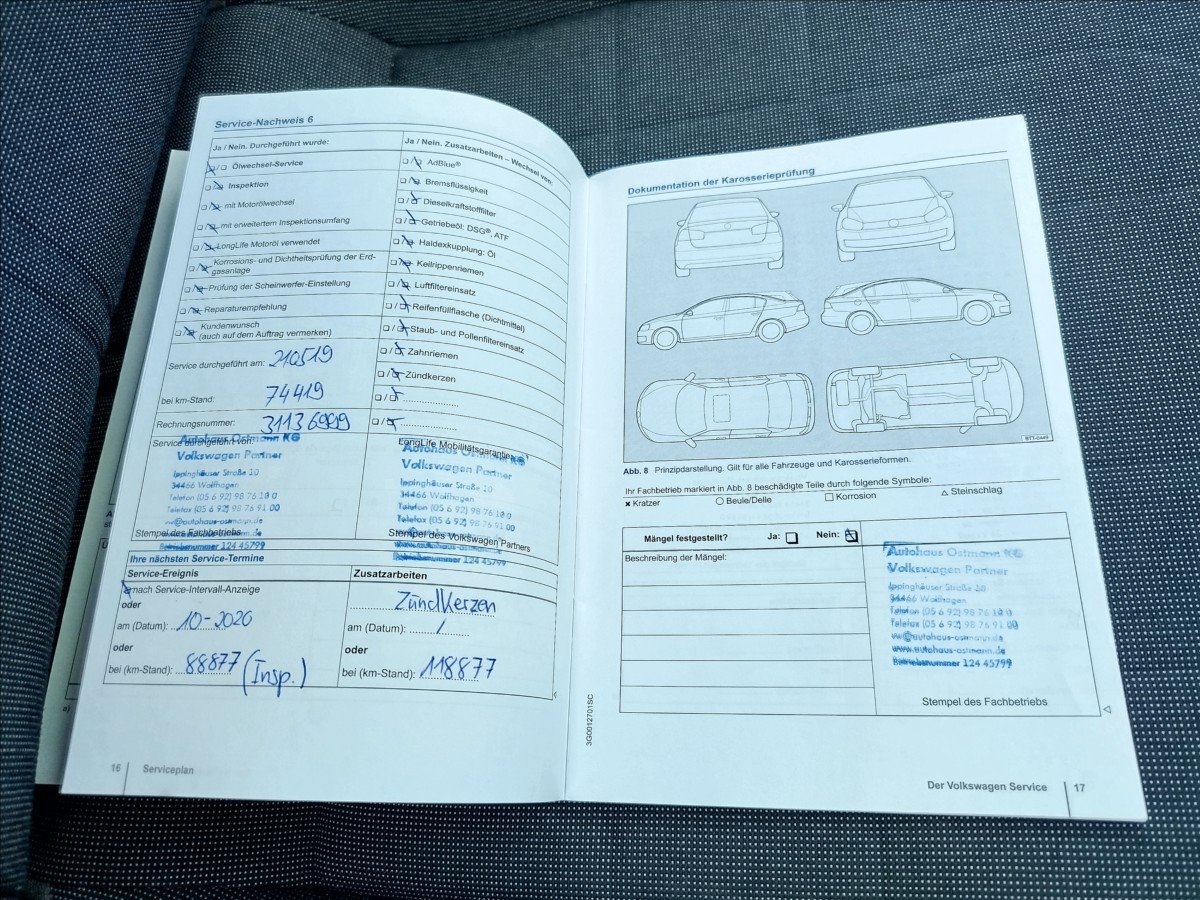 Service-Nachweis 6
Ja / Nein. Durchgeführt wurde:
Ölwechsel-Service
Inspektion
mit Motorölwechsel
mit erweitertem Inspektionsumfang
LongLife Motoröl verwendet
Korrosions- und Dichtheitsprüfung der Erd-
gasanlage
Prüfung der Scheinwerfer-Einstellung
Reparaturempfehlung
Kundenwunsch
(auch auf dem Auftrag vermerken)
Service durchgeführt am: 210519
bei km-Stand: 74419
Rechnungsnummer: 31136999
Ja / Nein. Zusatzarbeiten – Wechsel von:
AdBlue®
Bremsflüssigkeit
Dieselkraftstofffilter
Getriebeöl: DSG®, ATF
Haldexkupplung: Öl
Keilrippenriemen
Luftfiltereinsatz
Reifenfüllflasche (Dichtmittel)
Staub- und Pollenfiltereinsatz
Zahnriemen
Zündkerzen
Service durchgeführt von:
Autohaus Ostmann KG
Volkswagen Partner
Ippinghäuser Straße 10
34466 Wolfhagen
Telefon (05 6 92) 98 76 10 0
Telefax (05 6 92) 98 76 91 00
vw@autohaus-ostmann.de
www.autohaus-ostmann.de
Betriebsnummer 124 45799
Stempel des Fachbetriebs
LongLife Mobilitätsgarantie
Autohaus Ostmann KG
Volkswagen Partner
Ippinghäuser Straße 10
34466 Wolfhagen
Telefon (05 6 92) 98 76 10 0
Telefax (05 6 92) 98 76 91 00
vw@autohaus-ostmann.de
www.autohaus-ostmann.de
Betriebsnummer 124 45799
Stempel des Volkswagen Partners
Ihre nächsten Service-Termine
Service-Ereignis
nach Service-Intervall-Anzeige
oder
am (Datum): 10-2020
oder
bei (km-Stand): 88877 (Insp.)
Zusatzarbeiten
Zündkerzen
am (Datum): /
oder
bei (km-Stand): 118877
16 Serviceplan
Dokumentation der Karosserieprüfung
BTT-0449
Abb. 8 Prinzipdarstellung. Gilt für alle Fahrzeuge und Karosserieformen.
Ihr Fachbetrieb markiert in Abb. 8 beschädigte Teile durch folgende Symbole:
× Kratzer ○ Beule/Delle □ Korrosion △ Steinschlag
Mängel festgestellt? Ja: Nein:
Beschreibung der Mängel:
Autohaus Ostmann KG
Volkswagen Partner
Ippinghäuser Straße 10
34466 Wolfhagen
Telefon (05 6 92) 98 76 10 0
Telefax (05 6 92) 98 76 91 00
vw@autohaus-ostmann.de
www.autohaus-ostmann.de
Betriebsnummer 124 45799
Stempel des Fachbetriebs
3G0012701SC
Der Volkswagen Service 17